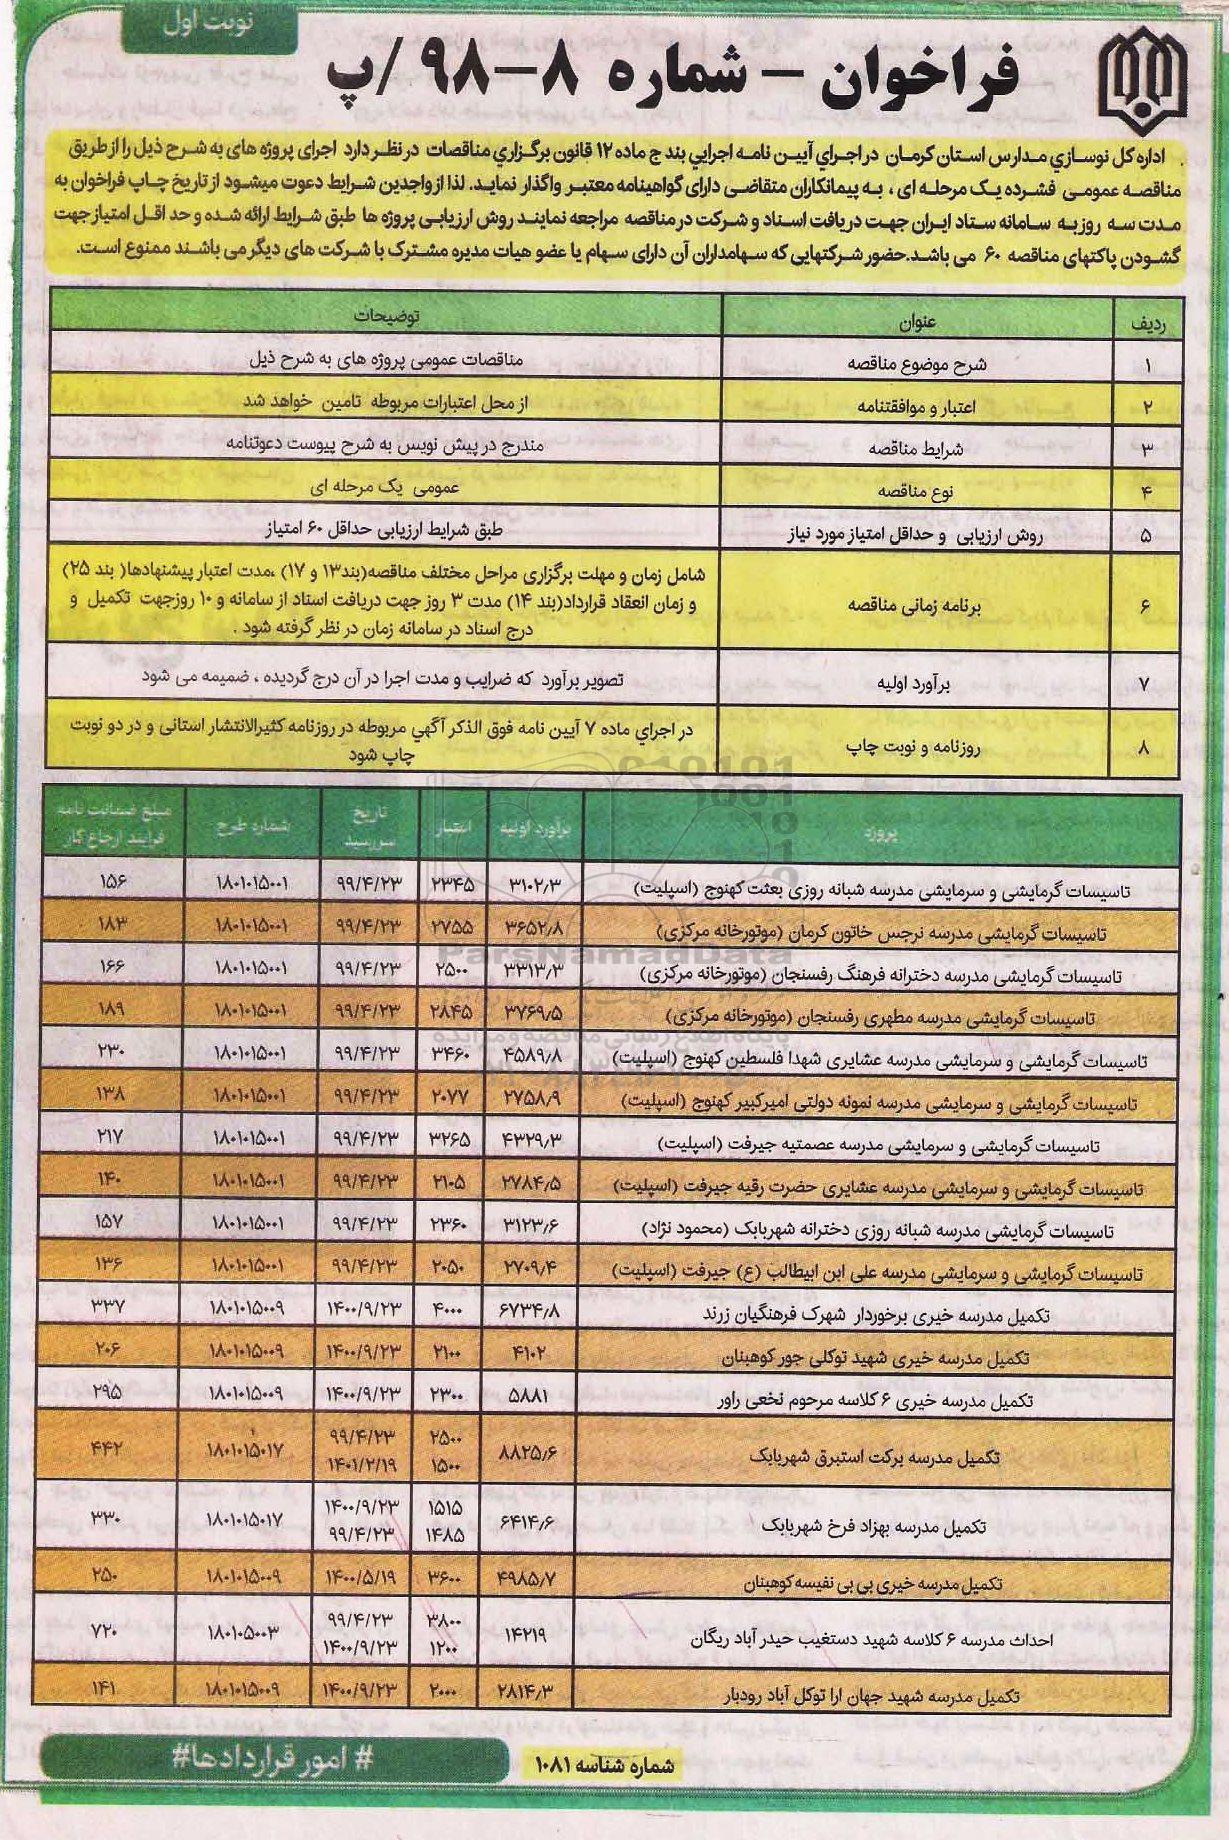 نوبت اول
فراخوان – شماره ۸–۹۸ /پ
اداره کل نوسازي مدارس استان کرمان در اجراي آيين نامه اجرايي بند ج ماده ۱۲ قانون برگزاري مناقصات در نظر دارد اجرای پروژه های به شرح ذیل را از طریق
مناقصه عمومی فشرده یک مرحله ای ، به پیمانکاران متقاضی دارای گواهینامه معتبر واگذار نماید. لذا از واجدین شرایط دعوت میشود از تاریخ چاپ فراخوان به
مدت سه روز به سامانه ستاد ایران جهت دریافت اسناد و شرکت در مناقصه مراجعه نمایند روش ارزیابی پروژه ها طبق شرایط ارائه شده و حد اقل امتیاز جهت
گشودن پاکتهای مناقصه ۶۰ می باشد.حضور شرکتهایی که سهامداران آن دارای سهام یا عضو هیات مدیره مشترک با شرکت های دیگر می باشند ممنوع است.
ردیف عنوان توضیحات
۱ شرح موضوع مناقصه مناقصات عمومی پروژه های به شرح ذیل
۲ اعتبار و موافقتنامه از محل اعتبارات مربوطه تامین خواهد شد
۳ شرایط مناقصه مندرج در پیش نویس به شرح پیوست دعوتنامه
۴ نوع مناقصه عمومی یک مرحله ای
۵ روش ارزیابی و حداقل امتیاز مورد نیاز طبق شرایط ارزیابی حداقل ۶۰ امتیاز
۶ برنامه زمانی مناقصه شامل زمان و مهلت برگزاری مراحل مختلف مناقصه(بند۱۳ و ۱۷) ،مدت اعتبار پیشنهادها( بند ۲۵)
و زمان انعقاد قرارداد(بند ۱۴) مدت ۳ روز جهت دریافت اسناد از سامانه و ۱۰ روزجهت تکمیل و
درج اسناد در سامانه زمان در نظر گرفته شود .
۷ برآورد اولیه تصویر برآورد که ضرایب و مدت اجرا در آن درج گردیده ، ضمیمه می شود
۸ روزنامه و نوبت چاپ در اجراي ماده ۷ آيين نامه فوق الذکر آگهي مربوطه در روزنامه کثیرالانتشار استانی و در دو نوبت
چاپ شود
پروژه برآورد اولیه اعتبار تاریخ سررسید شماره طرح مبلغ ضمانت نامه فرایند ارجاع کار
تاسیسات گرمایشی و سرمایشی مدرسه شبانه روزی بعثت کهنوج (اسپلیت) ۳۱۰۲٫۳ ۲۳۴۵ ۹۹/۴/۲۳ ۱۸۰۱۰۱۵۰۰۱ ۱۵۶
تاسیسات گرمایشی مدرسه نرجس خاتون کرمان (موتورخانه مرکزی) ۳۶۵۲٫۸ ۲۷۵۵ ۹۹/۴/۲۳ ۱۸۰۱۰۱۵۰۰۱ ۱۸۳
تاسیسات گرمایشی مدرسه دخترانه فرهنگ رفسنجان (موتورخانه مرکزی) ۳۳۱۳٫۳ ۲۵۰۰ ۹۹/۴/۲۳ ۱۸۰۱۰۱۵۰۰۱ ۱۶۶
تاسیسات گرمایشی مدرسه مطهری رفسنجان (موتورخانه مرکزی) ۳۷۶۹٫۵ ۲۸۴۵ ۹۹/۴/۲۳ ۱۸۰۱۰۱۵۰۰۱ ۱۸۹
تاسیسات گرمایشی و سرمایشی مدرسه عشایری شهدا فلسطین کهنوج (اسپلیت) ۴۵۸۹٫۸ ۳۴۶۰ ۹۹/۴/۲۳ ۱۸۰۱۰۱۵۰۰۱ ۲۳۰
تاسیسات گرمایشی و سرمایشی مدرسه نمونه دولتی امیرکبیر کهنوج (اسپلیت) ۲۷۵۸٫۹ ۲۰۷۷ ۹۹/۴/۲۳ ۱۸۰۱۰۱۵۰۰۱ ۱۳۸
تاسیسات گرمایشی و سرمایشی مدرسه عصمتیه جیرفت (اسپلیت) ۴۳۲۹٫۳ ۳۲۶۵ ۹۹/۴/۲۳ ۱۸۰۱۰۱۵۰۰۱ ۲۱۷
تاسیسات گرمایشی و سرمایشی مدرسه عشایری حضرت رقیه جیرفت (اسپلیت) ۲۷۸۴٫۵ ۲۱۰۵ ۹۹/۴/۲۳ ۱۸۰۱۰۱۵۰۰۱ ۱۴۰
تاسیسات گرمایشی مدرسه شبانه روزی دخترانه شهربابک (محمود نژاد) ۳۱۲۳٫۶ ۲۳۶۰ ۹۹/۴/۲۳ ۱۸۰۱۰۱۵۰۰۱ ۱۵۷
تاسیسات گرمایشی و سرمایشی مدرسه علی ابن ابیطالب (ع) جیرفت (اسپلیت) ۲۷۰۹٫۴ ۲۰۵۰ ۹۹/۴/۲۳ ۱۸۰۱۰۱۵۰۰۱ ۱۳۶
تکمیل مدرسه خیری برخوردار شهرک فرهنگیان زرند ۶۷۳۴٫۸ ۴۰۰۰ ۱۴۰۰/۹/۲۳ ۱۸۰۱۰۱۵۰۰۹ ۳۳۷
تکمیل مدرسه خیری شهید توکلی جور کوهبنان ۴۱۰۲ ۲۱۰۰ ۱۴۰۰/۹/۲۳ ۱۸۰۱۰۱۵۰۰۹ ۲۰۶
تکمیل مدرسه خیری ۶ کلاسه مرحوم نخعی راور ۵۸۸۱ ۲۳۰۰ ۱۴۰۰/۹/۲۳ ۱۸۰۱۰۱۵۰۰۹ ۲۹۵
تکمیل مدرسه برکت استبرق شهربابک ۸۸۲۵٫۶ ۲۵۰۰ ۹۹/۴/۲۳ ۱۸۰۱۰۱۵۰۱۷ ۴۴۲
۱۵۰۰ ۱۴۰۱/۲/۱۹
تکمیل مدرسه بهزاد فرخ شهربابک ۶۴۱۴٫۶ ۱۵۱۵ ۱۴۰۰/۹/۲۳ ۱۸۰۱۰۱۵۰۱۷ ۳۳۰
۱۴۸۵ ۹۹/۴/۲۳
تکمیل مدرسه خیری بی بی نفیسه کوهبنان ۴۹۸۵٫۷ ۳۶۰۰ ۱۴۰۰/۵/۱۹ ۱۸۰۱۰۱۵۰۰۹ ۲۵۰
احداث مدرسه ۶ کلاسه شهید دستغیب حیدر آباد ریگان ۱۴۲۱۹ ۳۸۰۰ ۹۹/۴/۲۳ ۱۸۰۱۰۵۰۰۳ ۷۲۰
۱۲۰۰ ۱۴۰۰/۹/۲۳
تکمیل مدرسه شهید جهان ارا توکل آباد رودبار ۲۸۱۴٫۳ ۲۰۰۰ ۱۴۰۰/۹/۲۳ ۱۸۰۱۰۱۵۰۰۹ ۱۴۱
شماره شناسه ۱۰۸۱
# امور قراردادها#
ParsNamadData